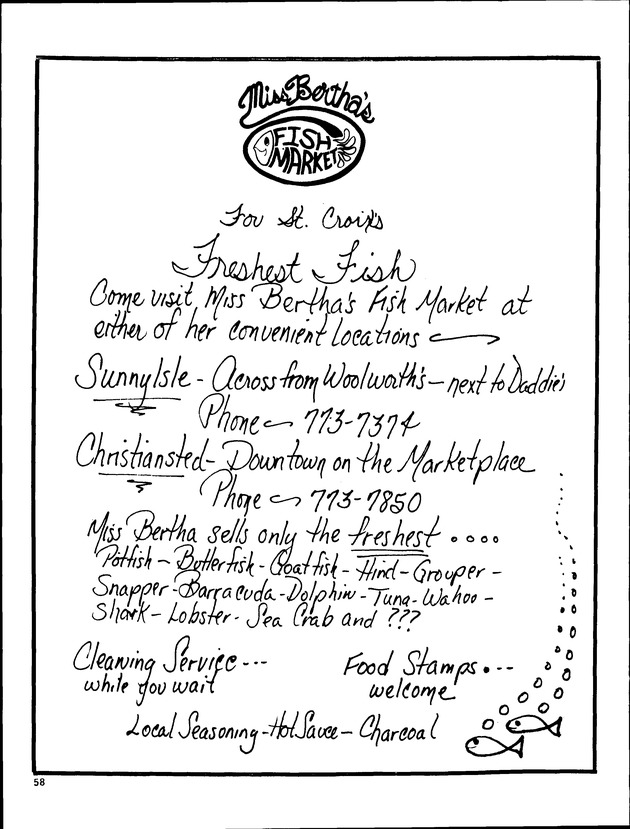 Miss Bertha's
FISH
MARKET
For St. Croix's
Freshest Fish
Come visit Miss Bertha's Fish Market at
either of her convenient locations
Sunny Isle - Across from Woolworth's - next to Daddie's
Phone 773-7374
Christiansted - Downtown on the Marketplace
Phone 773-7850
Miss Bertha sells only the freshest ....
Potfish - Butterfish - Goatfish - Hind - Grouper -
Snapper - Barracuda - Dolphin - Tuna - Wahoo -
Shark - Lobster - Sea Crab and ???
Cleaning Service ---
while you wait
Food Stamps . --
welcome
Local Seasoning - Hot Sauce - Charcoal
58